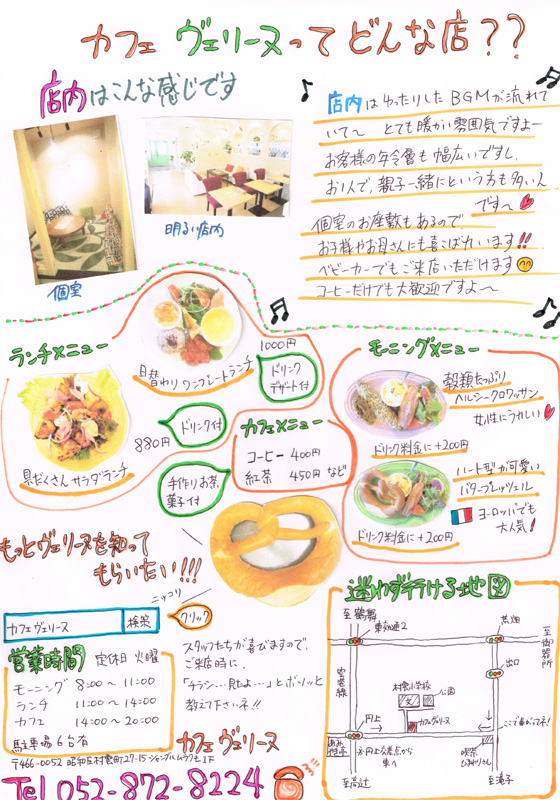 カフェ ヴェリーヌってどんな店??
店内はこんな感じです
店内はゆったりしたBGMが流れて
いて〜 とても暖かい雰囲気ですよー
お客様の年令層も幅広いですし、
お1人で、親子一緒にという方も多いん
です〜
個室のお座敷もあるので
お子様やお母さんにも喜こばれています!!
ベビーカーでもご来店いただけます
コーヒーだけでも大歓迎ですよ〜
個室
明るい店内
ランチメニュー
日替わりワンプレートランチ
1000円
ドリンク
デザート付
具だくさんサラダランチ
880円
ドリンク付
カフェメニュー
コーヒー 400円
紅茶 450円 など
手作りお茶
菓子付
モーニングメニュー
穀類たっぷり
ヘルシークロワッサン
女性にうれしい
ドリンク料金に+200円
ハート型が可愛い
バタープレッツェル
ヨーロッパでも
大人気!
ドリンク料金に+200円
もっとヴェリーヌを知って
もらいたい!!!
ニッコリ
カフェヴェリーヌ 検索
クリック
営業時間 定休日 火曜
モーニング 8:00〜11:00
ランチ 11:00〜14:00
カフェ 14:00〜20:00
駐車場6台有
スタッフたちが喜びますので、
ご来店時に、
「チラシ…見たよ…」とボソッと
教えて下さいネ!!
カフェ ヴェリーヌ
〒466-0052 昭和区村雲町27-15 シャンブルムラクモ1F
Tel 052-872-8224
迷わず行ける地図
至鶴舞
東郊通2
荒畑
至御器所
出口
空港線
村雲小学校
文
公園
カフェヴェリーヌ
円上
ここで曲がってネ!
円上交差点から
東へ
喫茶
至高辻
至滝子